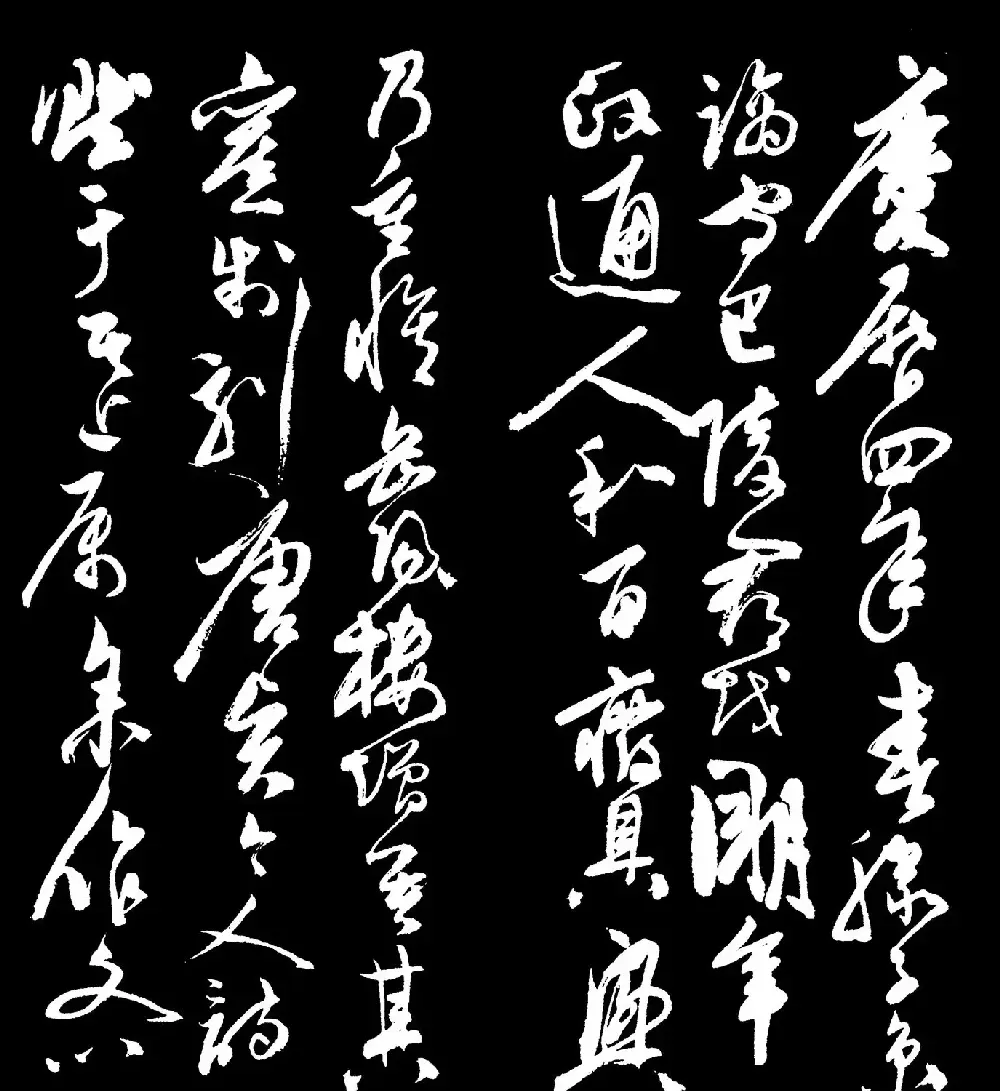 慶曆四年春滕子京
謫守巴陵郡越明年
政通人和百廢具興
乃重脩岳陽樓增其
舊制刻唐賢今人詩
賦于其上属余作文以